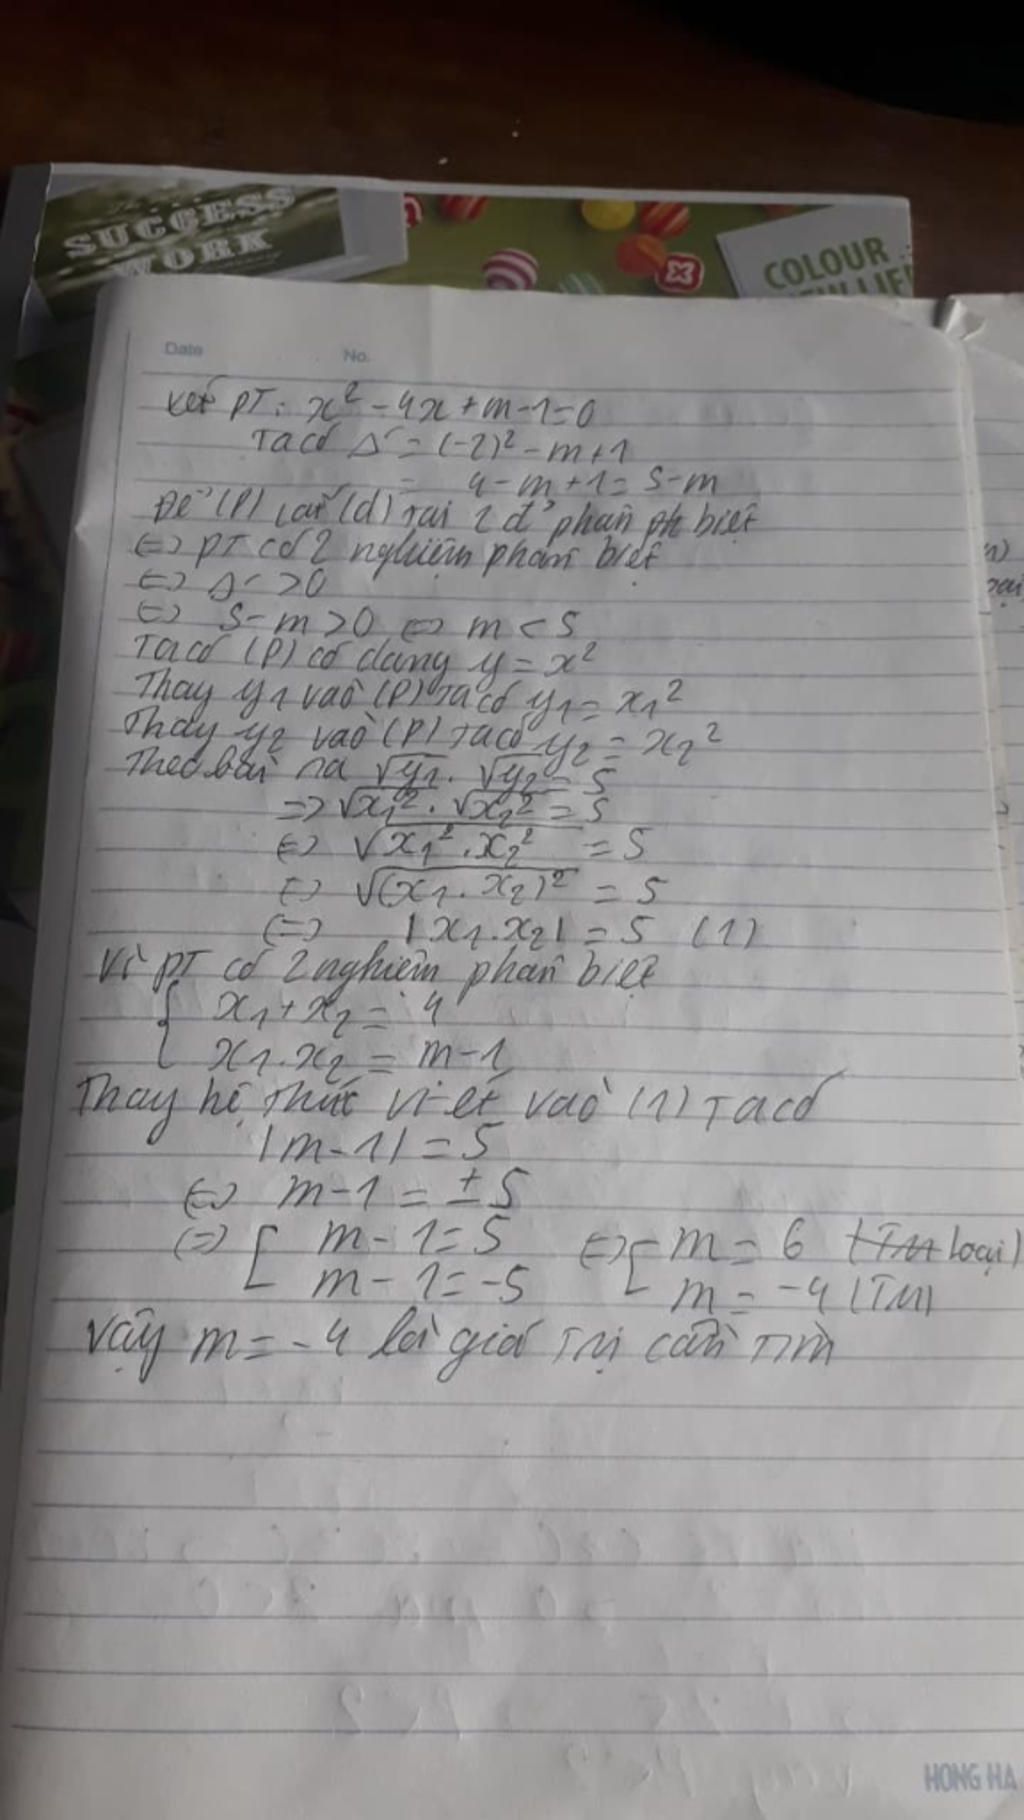 SUCCESS
WORK
COLOUR
Date No.
xét PT: x² - 4x + m - 1 = 0
Ta có Δ' = (-2)² - m + 1
= 4 - m + 1 = 5 - m
Để (P) cắt (d) tại 2 đ' phân ph biệt
⇔ PT có 2 nghiệm phân biệt
⇔ Δ' > 0
⇔ 5 - m > 0 ⇔ m < 5
Ta có (P) có dạng y = x²
Thay y₁ vào (P) ta có y₁ = x₁²
Thay y₂ vào (P) ta có y₂ = x₂²
Theo bài ra √y₁ . √y₂ = 5
=> √x₁² . √x₂² = 5
⇔ √x₁² . x₂² = 5
⇔ √(x₁ . x₂)² = 5
⇔ |x₁.x₂| = 5 (1)
Vì PT có 2 nghiệm phân biệt
{ x₁ + x₂ = 4
x₁.x₂ = m - 1
Thay hệ thức vi-ét vào (1) Ta có
|m - 1| = 5
⇔ m - 1 = ± 5
⇔ [ m - 1 = 5 ⇔ [ m = 6 (TM loại)
m - 1 = -5 m = -4 (TM)
Vậy m = -4 là giá trị cần tìm
HONG HA